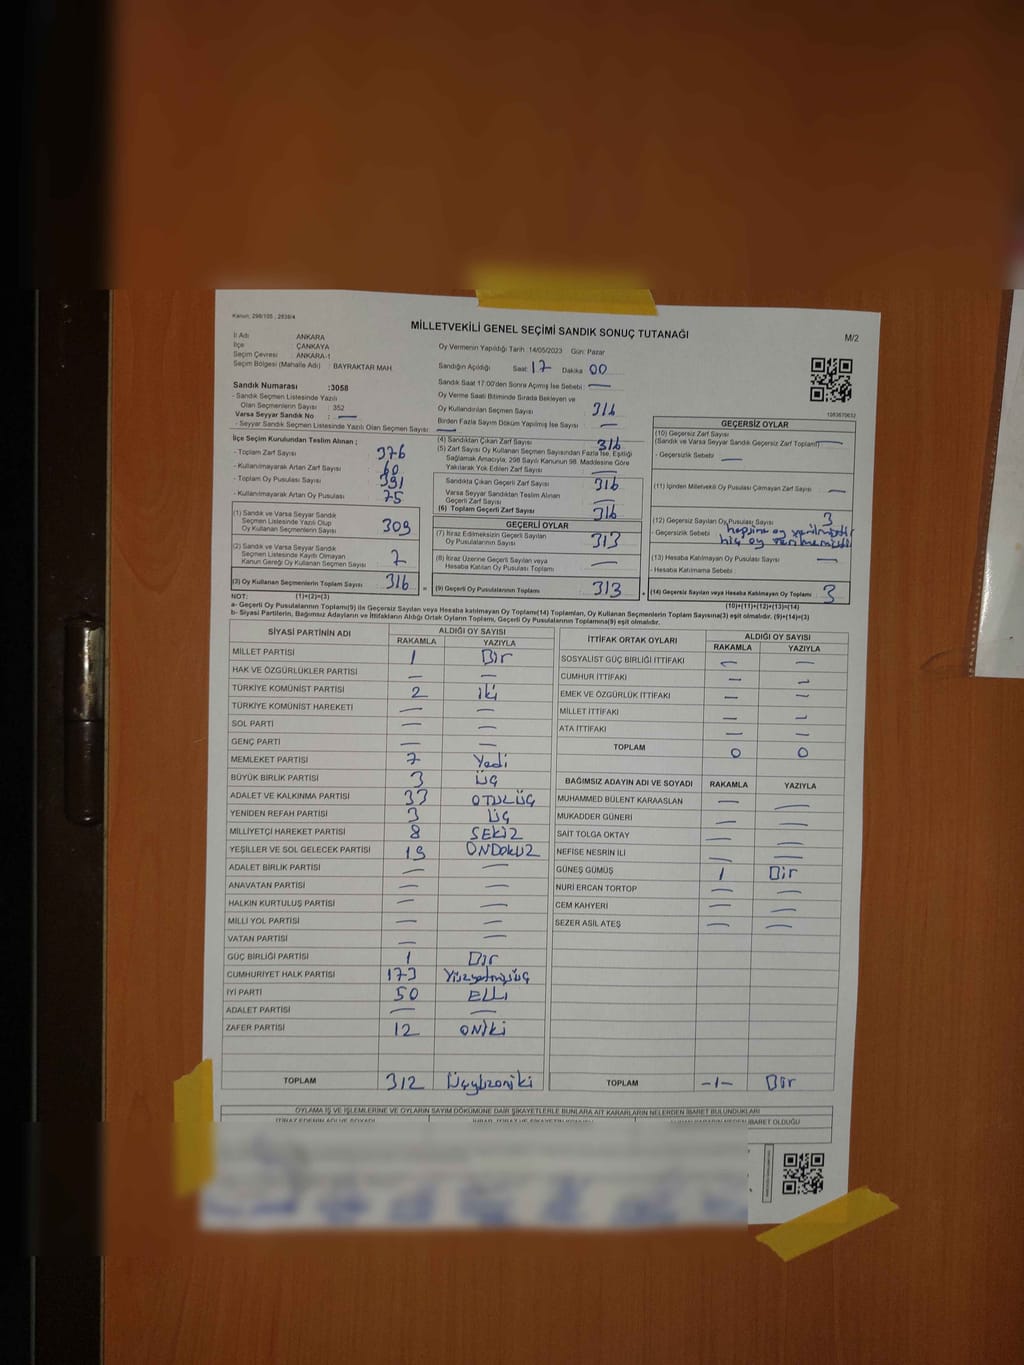 Kanun; 298/105 , 2839/4
MİLLETVEKİLİ GENEL SEÇİMİ SANDIK SONUÇ TUTANAĞI
M/2
İl Adı ANKARA
İlçe ÇANKAYA
Seçim Çevresi ANKARA-1
Seçim Bölgesi (Mahalle Adı) : BAYRAKTAR MAH
Oy Vermenin Yapıldığı Tarih :14/05/2023 Gün: Pazar
Sandığın Açıldığı Saat: 17 Dakika 00
Sandık Saat 17:00'den Sonra Açılmış İse Sebebi : —
Oy Verme Saati Bitiminde Sırada Bekleyen ve
Oy Kullandırılan Seçmen Sayısı 316
Birden Fazla Sayım Döküm Yapılmış İse Sayısı —
Sandık Numarası :3058
- Sandık Seçmen Listesinde Yazılı
Olan Seçmenlerin Sayısı : 352
Varsa Seyyar Sandık No : —
- Seyyar Sandık Seçmen Listesinde Yazılı Olan Seçmen Sayısı : —
İlçe Seçim Kurulundan Teslim Alınan ;
- Toplam Zarf Sayısı 376
- Kullanılmayarak Artan Zarf Sayısı 60
- Toplam Oy Pusulası Sayısı 391
- Kullanılmayarak Artan Oy Pusulası 75
(1) Sandık ve Varsa Seyyar Sandık
Seçmen Listesinde Yazılı Olup
Oy Kullanan Seçmenlerin Sayısı 309
(2) Sandık ve Varsa Seyyar Sandık
Seçmen Listesinde Kayıtlı Olmayan
Kanun Gereği Oy Kullanan Seçmen Sayısı 7
(3) Oy Kullanan Seçmenlerin Toplam Sayısı 316
(4) Sandıktan Çıkan Zarf Sayısı 316
(5) Zarf Sayısı Oy Kullanan Seçmen Sayısından Fazla İse, Eşitliği
Sağlamak Amacıyla, 298 Sayılı Kanunun 98. Maddesine Göre
Yakılarak Yok Edilen Zarf Sayısı —
Sandıkta Çıkan Geçerli Zarf Sayısı 316
Varsa Seyyar Sandıktan Teslim Alınan
Geçerli Zarf Sayısı —
(6) Toplam Geçerli Zarf Sayısı 316
GEÇERLİ OYLAR
(7) İtiraz Edilmeksizin Geçerli Sayılan
Oy Pusulalarının Sayısı 313
(8) İtiraz Üzerine Geçerli Sayılan veya
Hesaba Katılan Oy Pusulası Toplamı —
= (9) Geçerli Oy Pusulalarının Toplamı 313
1083870632
GEÇERSİZ OYLAR
(10) Geçersiz Zarf Sayısı
(Sandık ve Varsa Seyyar Sandık Geçersiz Zarf Toplamı) —
- Geçersizlik Sebebi : —
(11) İçinden Milletvekili Oy Pusulası Çıkmayan Zarf Sayısı —
(12) Geçersiz Sayılan Oy Pusulası Sayısı 3
- Geçersizlik Sebebi hepsine oy verilmiştir
hiç oy verilmemiştir
(13) Hesaba Katılmayan Oy Pusulası Sayısı —
- Hesaba Katılmama Sebebi :
+ (14) Geçersiz Sayılan veya Hesaba Katılmayan Oy Toplamı 3
NOT: (1)+(2)=(3)
(10)+(11)+(12)+(13)=(14)
a- Geçerli Oy Pusulalarının Toplamı(9) ile Geçersiz Sayılan veya Hesaba katılmayan Oy Toplamı(14) Toplamları, Oy Kullanan Seçmenlerin Toplam Sayısına(3) eşit olmalıdır. (9)+(14)=(3)
b- Siyasi Partilerin, Bağımsız Adayların ve İttifakların Aldığı Ortak Oyların Toplamı, Geçerli Oy Pusulalarının Toplamına(9) eşit olmalıdır.
SİYASİ PARTİNİN ADI ALDIĞI OY SAYISI
RAKAMLA YAZIYLA
MİLLET PARTİSİ 1 Bir
HAK VE ÖZGÜRLÜKLER PARTİSİ — —
TÜRKİYE KOMÜNİST PARTİSİ 2 iki
TÜRKİYE KOMÜNİST HAREKETİ — —
SOL PARTİ — —
GENÇ PARTİ — —
MEMLEKET PARTİSİ 7 Yedi
BÜYÜK BİRLİK PARTİSİ 3 ÜÇ
ADALET VE KALKINMA PARTİSİ 33 OTUZÜÇ
YENİDEN REFAH PARTİSİ 3 ÜÇ
MİLLİYETÇİ HAREKET PARTİSİ 8 SEKİZ
YEŞİLLER VE SOL GELECEK PARTİSİ 19 ONDOKUZ
ADALET BİRLİK PARTİSİ — —
ANAVATAN PARTİSİ — —
HALKIN KURTULUŞ PARTİSİ — —
MİLLİ YOL PARTİSİ — —
VATAN PARTİSİ — —
GÜÇ BİRLİĞİ PARTİSİ 1 Bir
CUMHURİYET HALK PARTİSİ 173 Yüzyetmişüç
İYİ PARTİ 50 ELLİ
ADALET PARTİSİ — —
ZAFER PARTİSİ 12 ONİKİ
TOPLAM 312 Üçyüzoniki
İTTİFAK ORTAK OYLARI ALDIĞI OY SAYISI
RAKAMLA YAZIYLA
SOSYALİST GÜÇ BİRLİĞİ İTTİFAKI — —
CUMHUR İTTİFAKI — —
EMEK VE ÖZGÜRLÜK İTTİFAKI — —
MİLLET İTTİFAKI — —
ATA İTTİFAKI — —
TOPLAM 0 0
BAĞIMSIZ ADAYIN ADI VE SOYADI RAKAMLA YAZIYLA
MUHAMMED BÜLENT KARAASLAN — —
MUKADDER GÜNERİ — —
SAİT TOLGA OKTAY — —
NEFİSE NESRİN İLİ — —
GÜNEŞ GÜMÜŞ 1 Bir
NURİ ERCAN TORTOP — —
CEM KAHYERİ — —
SEZER ASIL ATEŞ — —
TOPLAM -1- Bir
OYLAMA İŞ VE İŞLEMLERİNE VE OYLARIN SAYIM DÖKÜMÜNE DAİR ŞİKAYETLERLE BUNLARA AİT KARARLARIN NELERDEN İBARET BULUNDUKLARI
İTİRAZ EDENİN ADI VE SOYADI
İBARET OLDUĞU